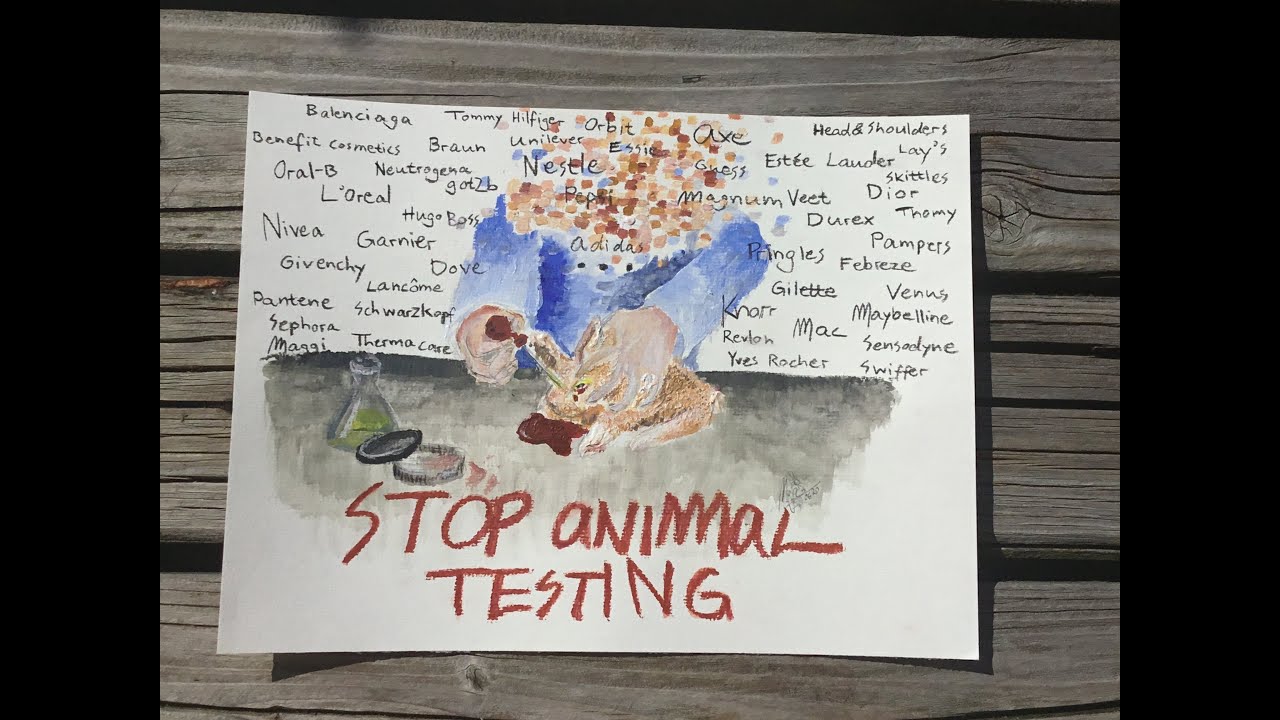 Balenciaga
Tommy Hilfiger
Orbit
Axe
Head & Shoulders
Benefit cosmetics
Braun
Unilever
Essie
Lay's
Oral-B
Neutrogena
Nestle
Guess
Estée Lauder
Skittles
got2b
L'Oreal
Pepsi
Magnum
Veet
Dior
Hugo Boss
Durex
Thomy
Nivea
Garnier
adidas
Pringles
Pampers
Givenchy
Dove
Febreze
Lancôme
Gilette
Venus
Pantene
Schwarzkopf
Knorr
Maybelline
Sephora
Revlon
Mac
Sensodyne
Maggi
Thermacare
Yves Rocher
Swiffer
STOP ANIMAL
TESTING